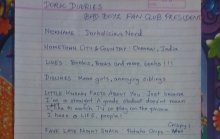 DORK DIARIES
BAD BOYZ FAN CLUB PRESIDENT
NICKNAME Dorkalicious Nerd
HOMETOWN CITY & COUNTRY: Chennai, India
LIKES: Books, Books and more books!!!
DISLIKES Mean girls, annoying siblings
LITTLE KNOWN FACTS ABOUT YOU Just because
I'm a straight A grade student doesn't mean
I have a LIFE, people!
FAVE LATE NIGHT SNACK Potato Chips